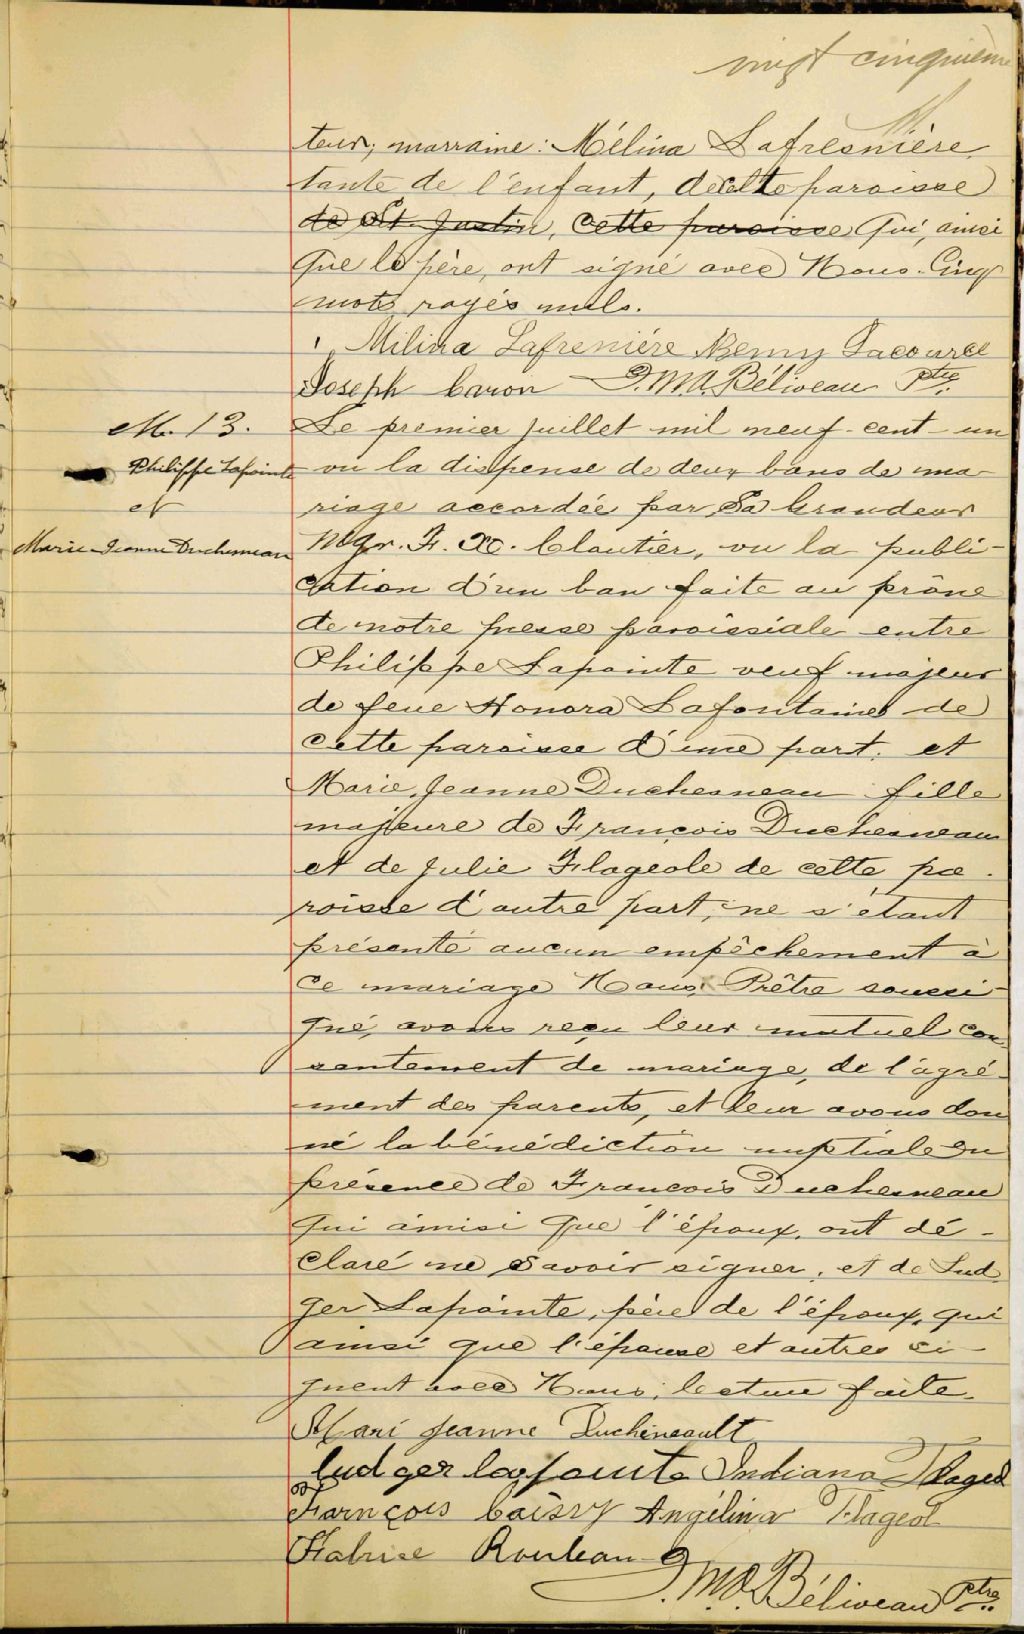 vingt cinquième
teur; marraine: Mélina Lafresnière
tante de l'enfant, de cette paroisse
de St. Justin, cette paroisse qui, ainsi
que le père, ont signé avec Nous. Cinq
mots rayés nuls.
Milina Lafreniére Remy Lacource
Joseph Caron J.M.A. Béliveau Ptre.
M. 13.
Philippe Lapointe
et
Marie-Jeanne Duchesneau
Le premier juillet mil neuf-cent-un
vu la dispense de deux bans de ma-
riage accordée par Sa Grandeur
Mgr. F. X. Cloutier, vu la publi-
cation d'un ban faite au prône
de notre messe paroissiale entre
Philippe Lapointe veuf majeur
de feue Honora Lafontaine de
cette paroisse d'une part; et
Marie Jeanne Duchesneau fille
majeure de François Duchesneau
et de Julie Flageole de cette pa-
roisse d'autre part; ne s'étant
présenté aucun empêchement à
ce mariage Nous, Prêtre soussi-
gné, avons reçu leur mutuel con-
sentement de mariage, de l'agré-
ment des parents, et leur avons don
né la bénédiction nuptiale en
présence de François Duchesneau
qui ainisi que l'époux, ont dé-
claré ne savoir signer, et de Lud
ger Lapointe, père de l'époux, qui
ainsi que l'épouse et autres si-
gnent avec Nous; lecture faite.
Mari Jeanne Duchineault
ludger lapointe Indiana Flageol
Farnçois Caissy Angélina Flageol
Fabrise Rouleau
J.M.A. Béliveau Ptre.